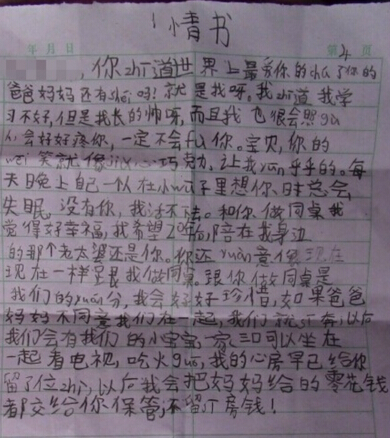 情书
年 月 日 第 页
，你zhī道世界上最爱你的chú了你的
爸爸妈妈还有shéi吗！就是我呀，我zhī道我学
习不好，但是我长的帅呀，而且我也很会照gù
人，会好好疼你，一定不会fù你。宝贝，你的
wēi笑就像 巧 力，让我yūn乎乎的。每
天晚上自己一个人在小 子里想你时总会
失眠。没有你，我活不 。和你做同桌我
觉得好幸福，我希望20年 陪在我身边
的那个老太婆还是你。你还yuàn意像现在
现在一样 跟我做同桌。跟你做同桌是
我们的yuán分，我会好好珍惜，如果爸爸
妈妈不同意我们在一起，我们就sī奔，以后
我们会有我们的小宝宝，一家三口可以坐在
一起看电视，吃火guō，我的心房早已给你
留了位zhì，以后我会把妈妈给的零花钱
都交给你保管，不留 房钱！